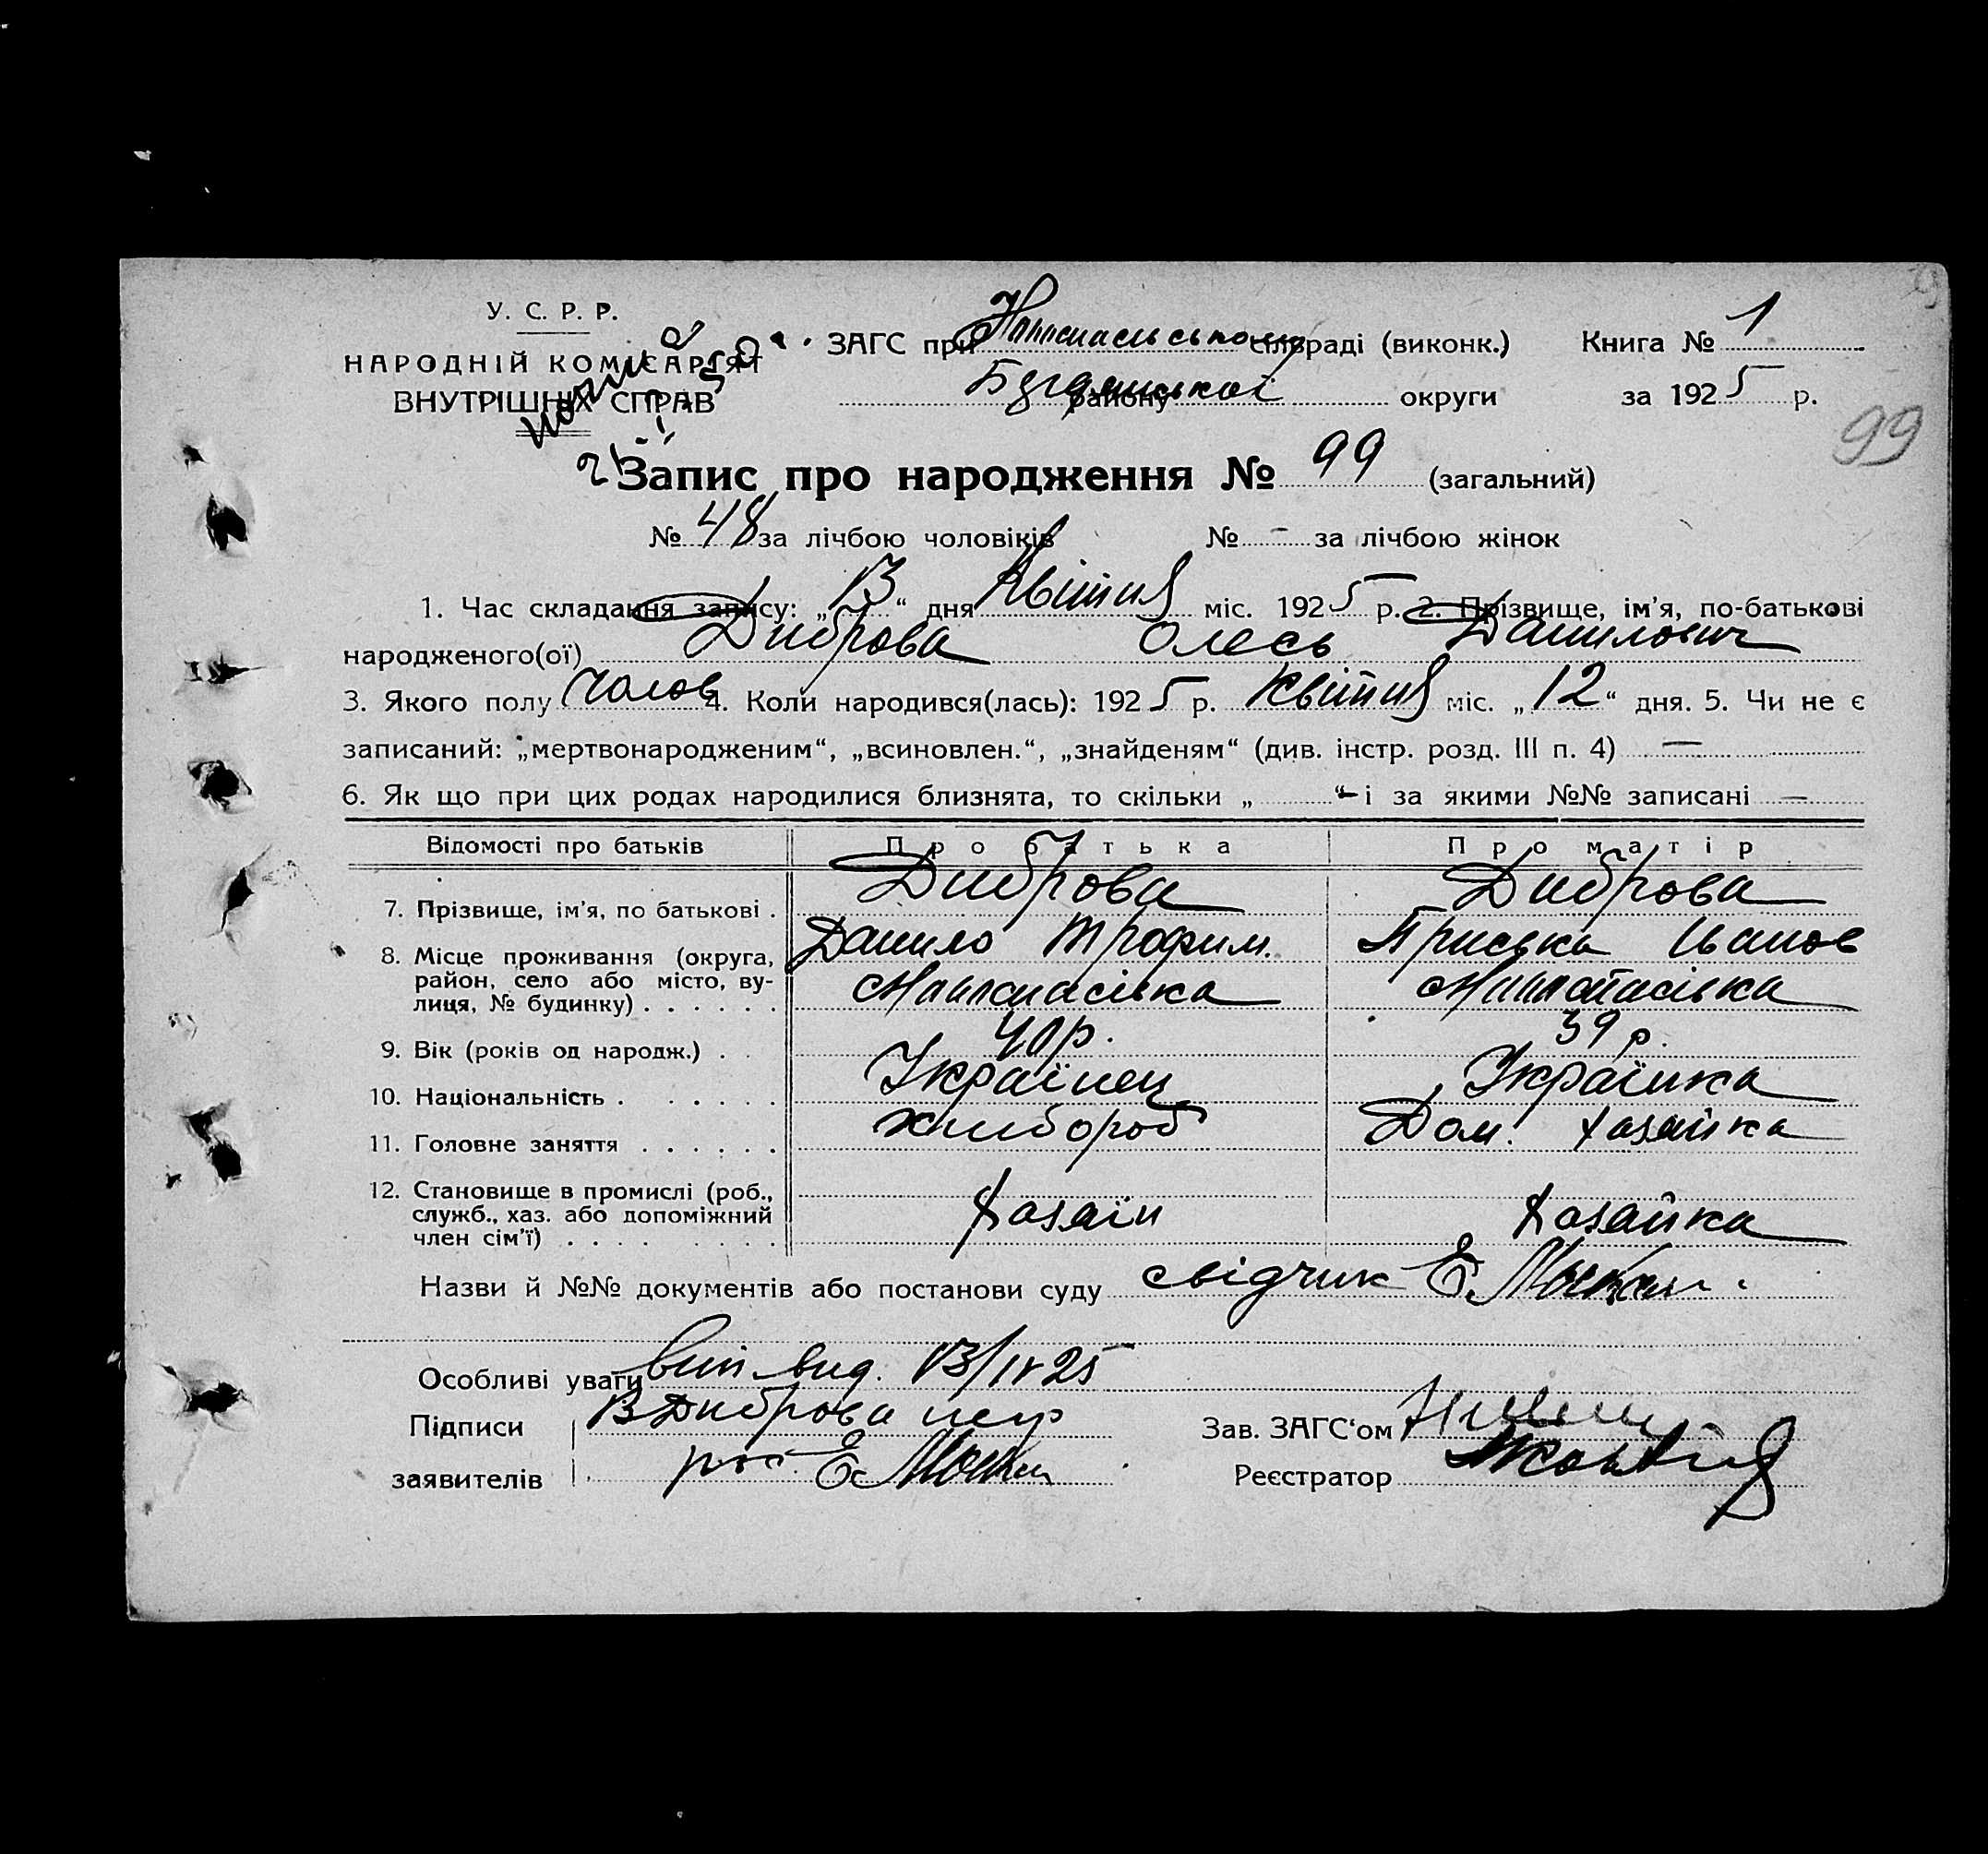 У. С. Р. Р.
НАРОДНІЙ КОМІСАРІЯТ
ВНУТРІШНІХ СПРАВ
ЗАГС при сільраді (виконк.) Книга № 1
району округи за 1925 р.
99
Запис про народження № 99 (загальний)
№ 48 за лічбою чоловіків № - за лічбою жінок
1. Час складання запису: „13“ дня Квітня міс. 1925 р. 2. Прізвище, ім’я, по-батькові
народженого(ої) Диброва Олесь Данилович
3. Якого полу Чолов 4. Коли народився(лась): 1925 р. Квітня міс. „12“ дня. 5. Чи не є
записаний: „мертвонародженим“, „всиновлен.“, „знайденям“ (див. інстр. розд. III п. 4) —
6. Як що при цих родах народилися близнята, то скільки „ — “ і за якими №№ записані —
Відомості про батьків Про батька Про матір
7. Прізвище, ім’я, по батькові . Диброва Диброва
Данило Трофим. Приська Іванов
8. Місце проживання (округа, район, село або місто, вулиця, № будинку) . . . . . .
9. Вік (років од народж.) . . 40р. 39 р.
10. Національність . . . . . . Українец Українка
11. Головне заняття . . . . . . Хлибороб Дом. хазайка
12. Становище в промислі (роб., служб., хаз. або допоміжний член сім’ї) . . . . Хазаїн Хазайка
Назви й №№ документів або постанови суду свідчик Е.
Особливі уваги вип вид. 13/IV 25
Підписи Диброва
заявителів
Зав. ЗАГС‘ом
Реєстратор